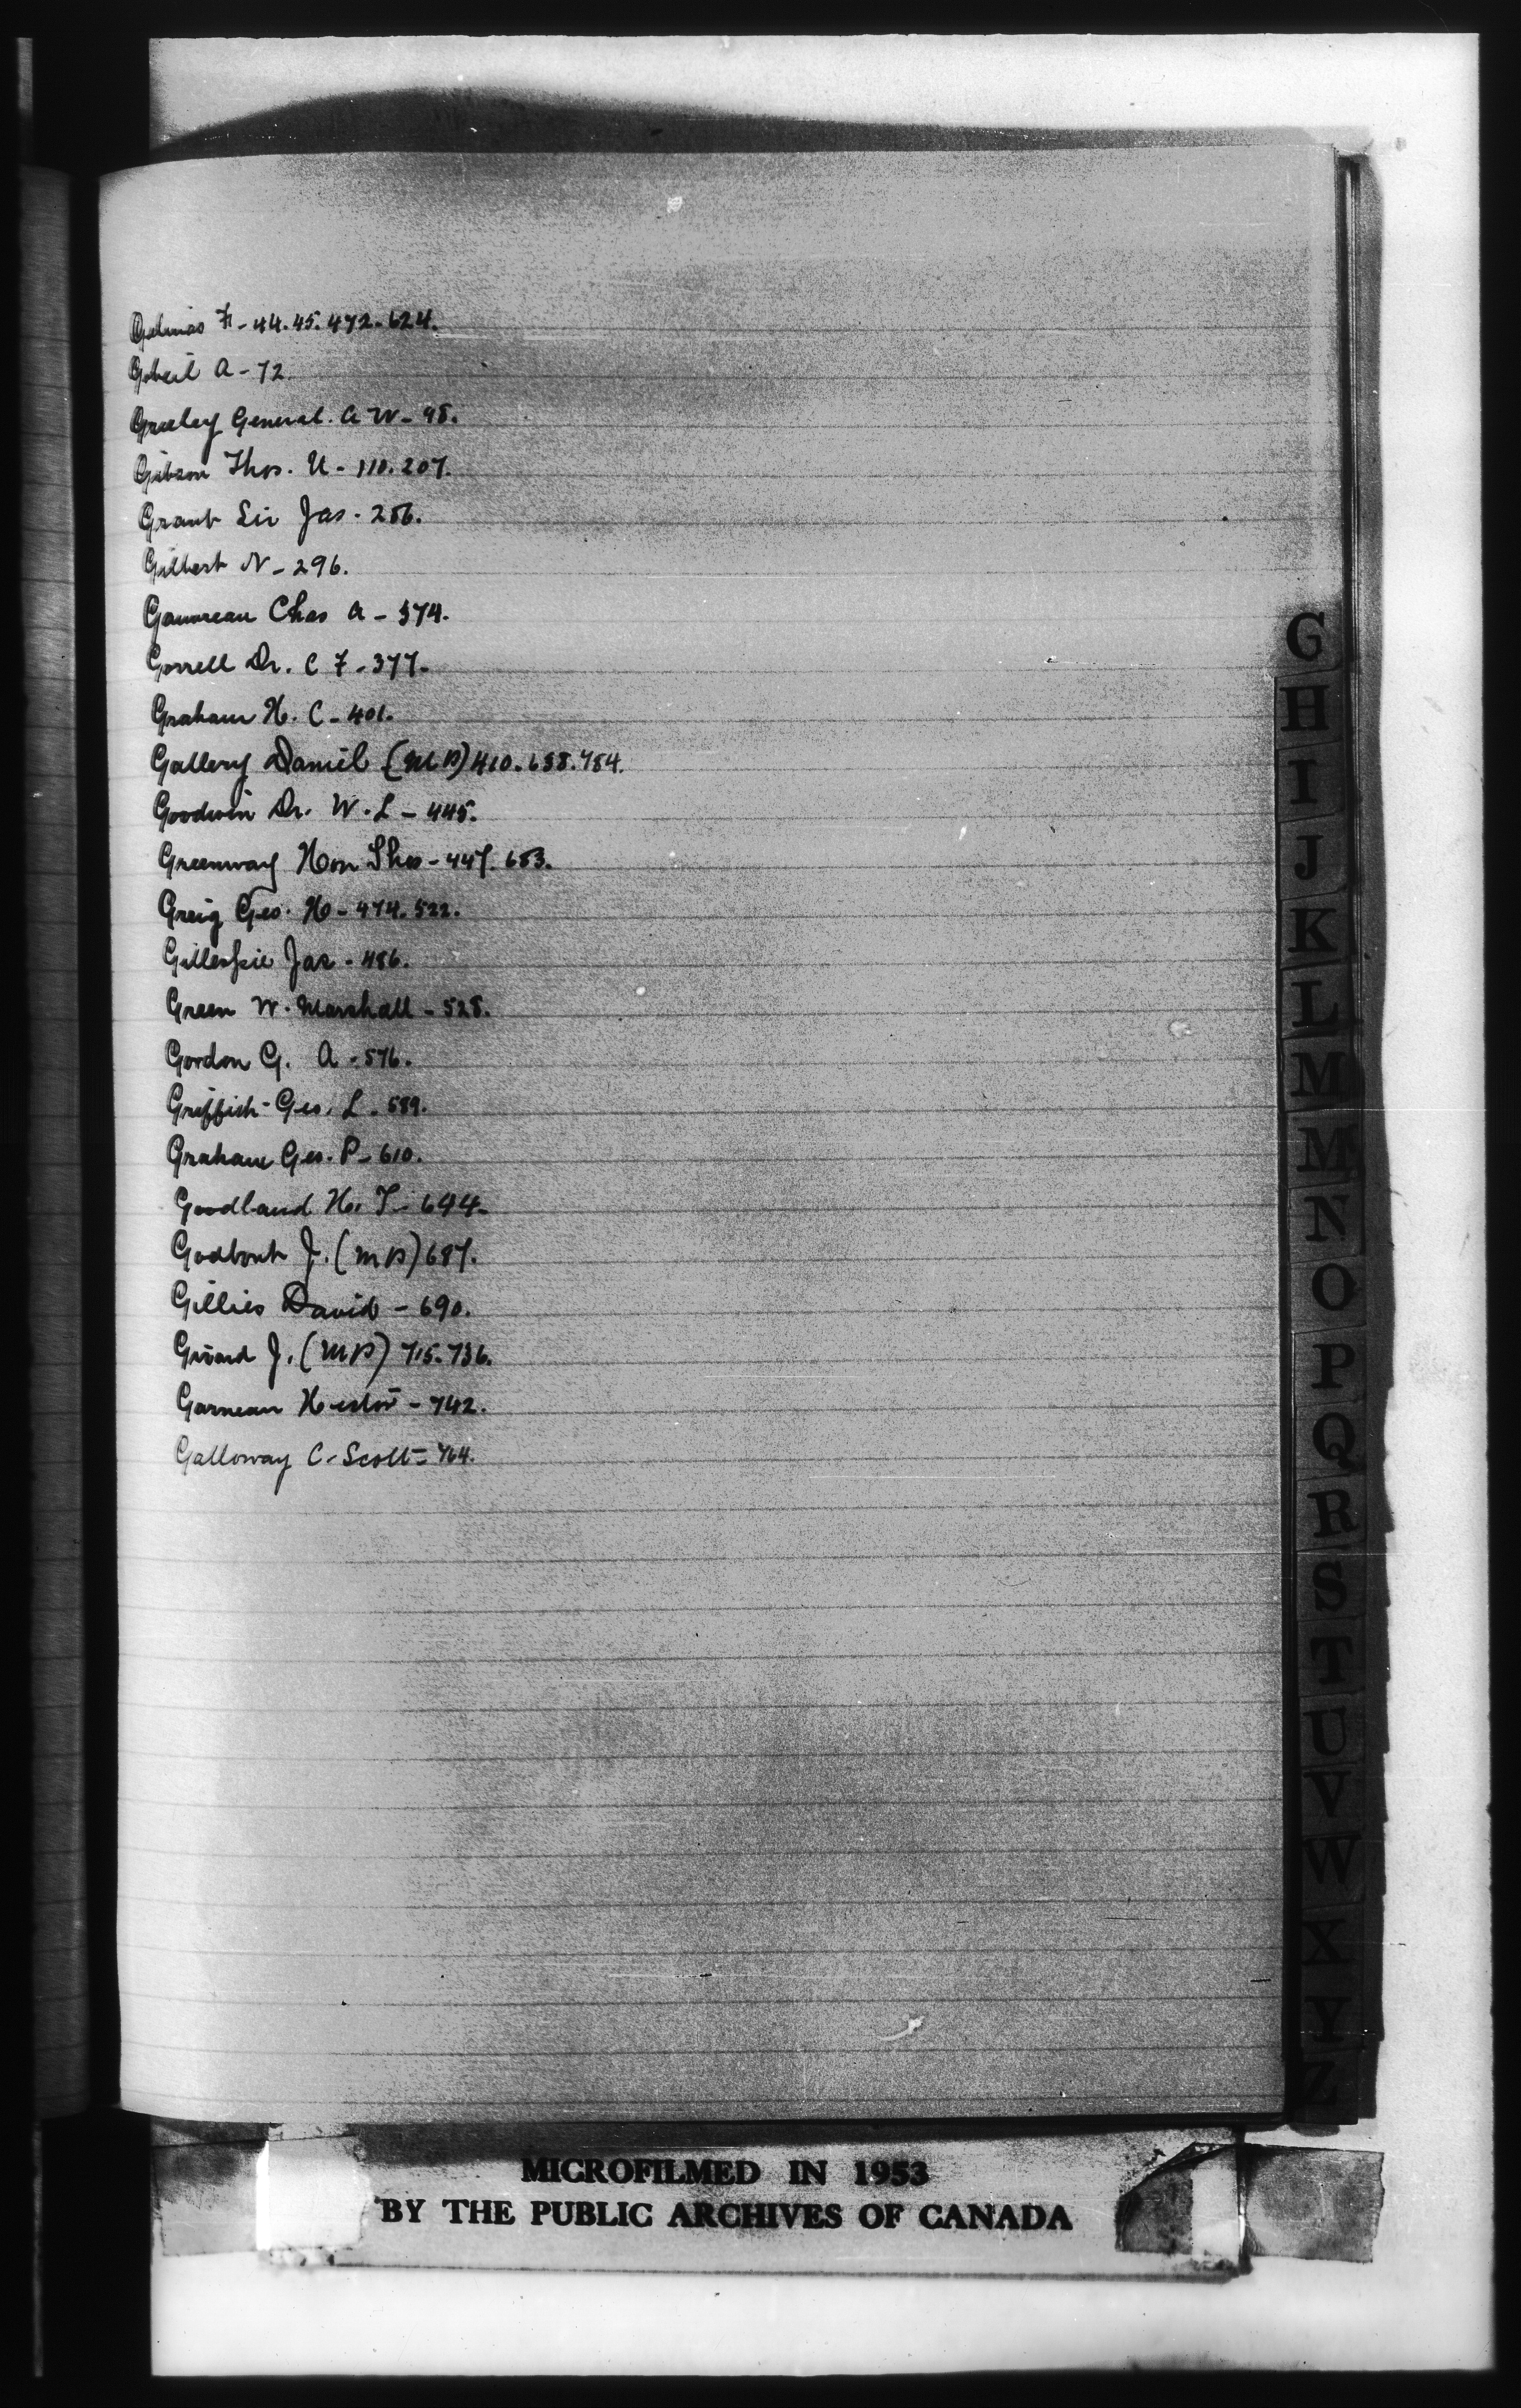 Gelinas F - 44. 45. 472. 624.
Gobeil A - 72.
Greeley General. A W - 98.
Gibson Thos. U - 110. 207.
Grant Sir Jas - 256.
Gilbert N - 296.
Gauvreau Chas A - 374.
Gorrell Dr. C F - 377.
Graham H. C - 401.
Gallery Daniel (MP) 410. 638. 754.
Goodwin Dr. W. L - 445.
Greenway Hon Thos - 447. 653.
Greig Geo. H - 474. 522.
Gillespie Jas - 486.
Green W. Marshall - 528.
Gordon G. A - 576.
Griffith - Geo. L - 589.
Graham Geo. P - 610.
Goodland H. T - 644.
Godbout J. (MP) 687.
Gillies David - 690.
Girard J. (MP) 715. 736.
Garneau Hector - 742.
Galloway C. Scott - 764.
G
H
I
J
K
L
M
Mc
N
O
P
Q
R
S
T
U
V
W
X
Y
Z
MICROFILMED IN 1953
BY THE PUBLIC ARCHIVES OF CANADA